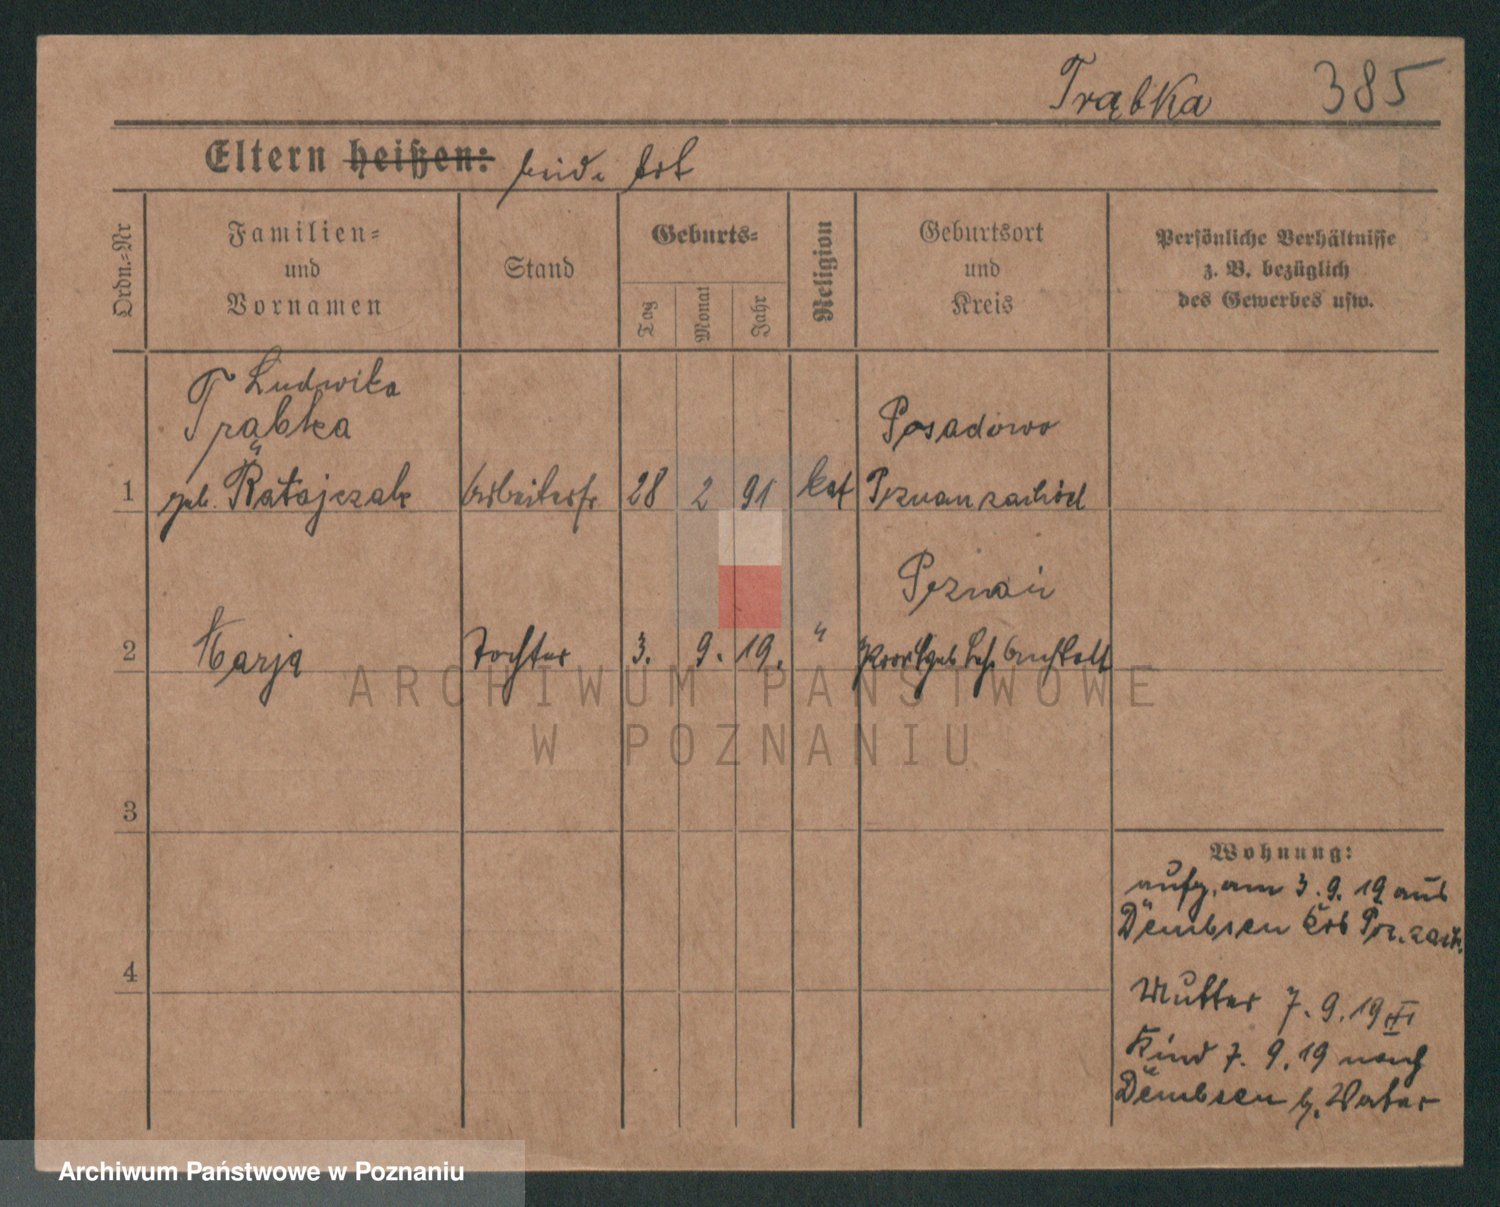 Trąbka 385
Eltern heißen: beide tot
Ordn.-Nr
Familien-
und
Vornamen
Stand
Geburts-
Tag
Monat
Jahr
Religion
Geburtsort
und
Kreis
Persönliche Verhältnisse
z. B. bezüglich
des Gewerbes usw.
Ludwika
Trąbka
Posadowo
1 geb. Ratajczak Arbeiterfr 28 2 91 kat Poznan zachód
Poznań
2 Marja Tochter 3. 9. 19. "
ARCHIWUM PAŃSTWOWE
W POZNANIU
3
Wohnung:
aufg. am 3.9.19 aus
Dembsen Krs Poz. zach.
4
Mutter 7.9.19
Kind 7.9.19 nach
Dembsen z. Vater
Archiwum Państwowe w Poznaniu